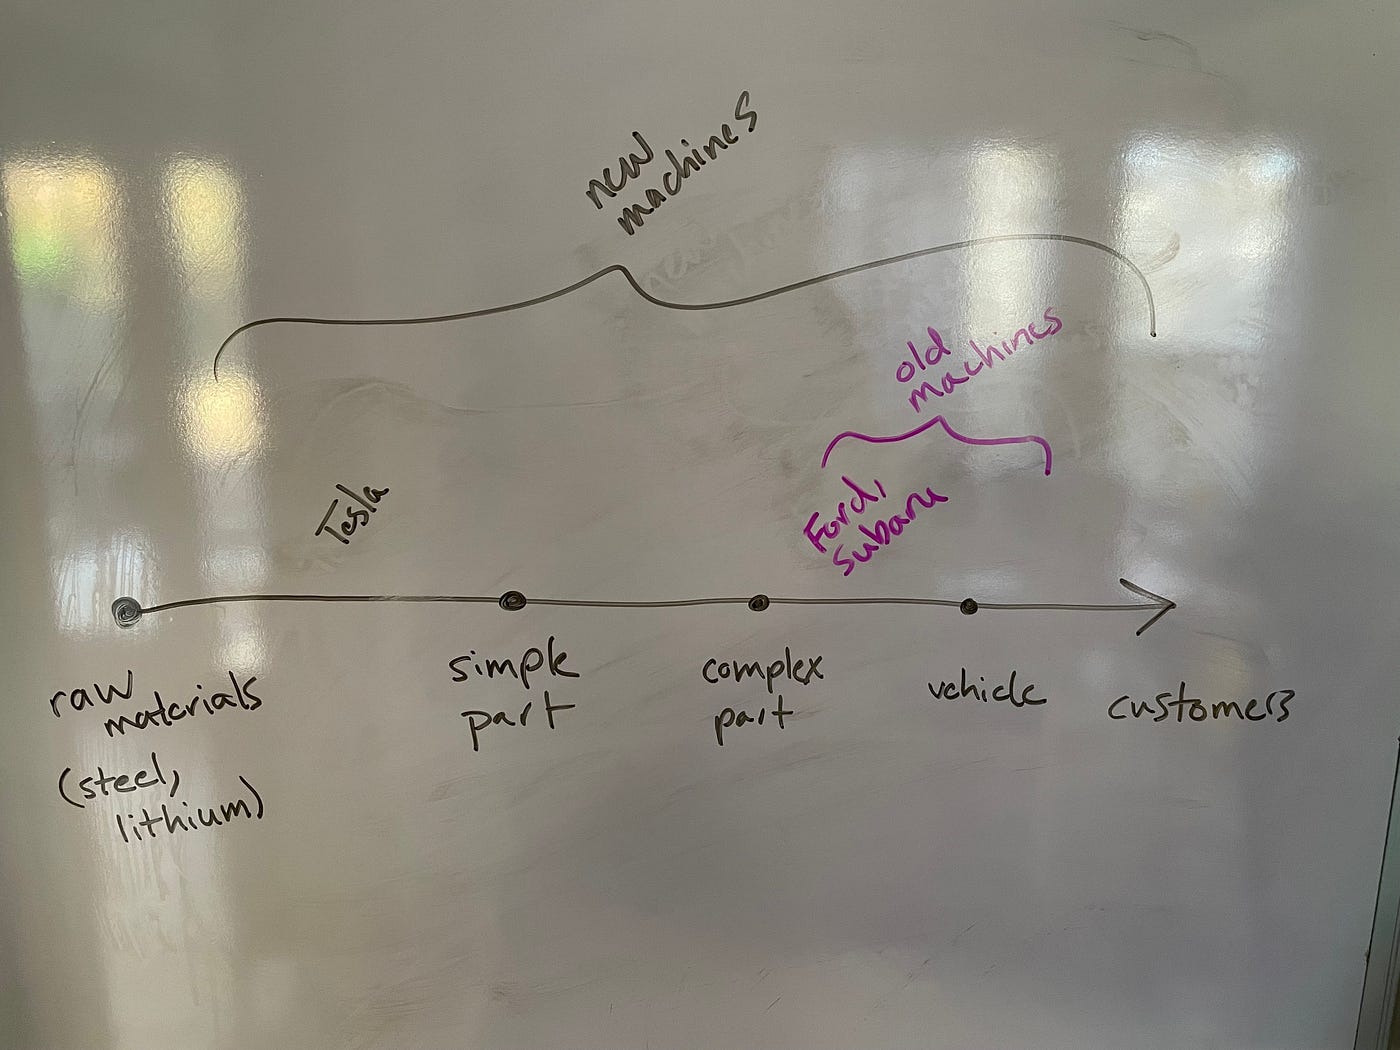 new
machines
old
machines
Tesla
Ford,
Subaru
raw
materials
(steel,
lithium)
simple
part
complex
part
vehicle
customers